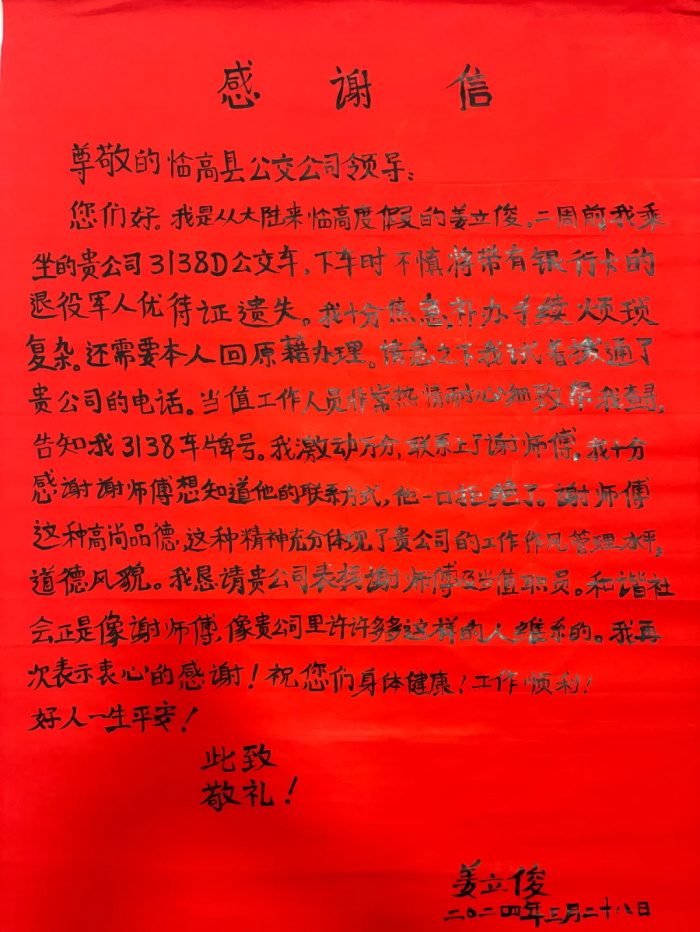 感谢信
尊敬的临高县公交公司领导:
您们好。我是从大陆来临高度假的姜立俊,二周前我乘
坐的贵公司3138D公交车,下车时不慎将带有银行卡的
退役军人优待证遗失。我十分焦急,补办手续烦琐
复杂。还需要本人回原籍办理。情急之下我试着拨通了
贵公司的电话。当值工作人员非常热情耐心细致帮我查寻,
告知我3138车牌号。我激动万分,联系上了谢师傅,我十分
感谢谢师傅想知道他的联系方式,他一口拒绝了。谢师傅
这种高尚品德,这种精神充分体现了贵公司的工作作风管理水平,
道德风貌。我恳请贵公司表扬谢师傅及当值职员。和谐社
会正是像谢师傅,像贵公司里许许多多这样的人维系的。我再
次表示衷心的感谢!祝您们身体健康!工作顺利!
好人一生平安!
此致
敬礼!
姜立俊
二〇二四年三月二十八日